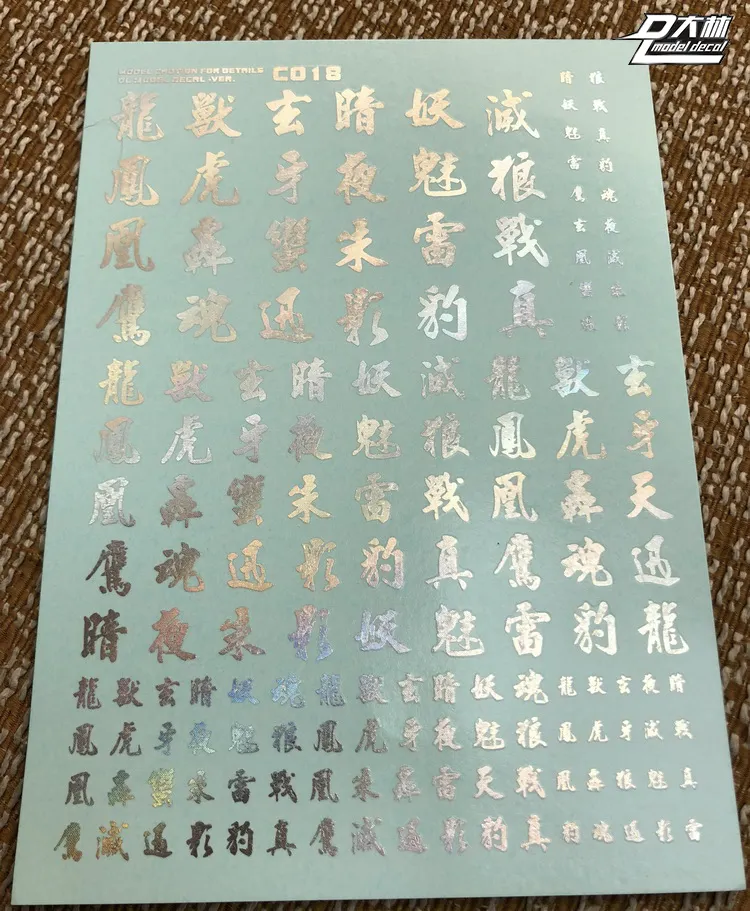 D大林
model decal
MODEL CAUTION FOR DETAILS
C018
DECAL .VER.
龍 獸 玄 暗 妖 滅
鳳 虎 牙 夜 魅 狼
凰 轟 蠻 朱 雷 戰
鷹 魂 迅 影 豹 真
暗 狼
妖 戰
魅 真
雷 豹
鷹 魂
玄 夜
凰 滅
龍 獸 玄 暗 妖 滅 龍 獸 玄
鳳 虎 牙 夜 魅 狼 鳳 虎 牙
凰 轟 蠻 朱 雷 戰 凰 轟 天
鷹 魂 迅 影 豹 真 鷹 魂 迅
暗 夜 朱 影 妖 魅 雷 豹 龍
龍 獸 玄 暗 妖 魂 龍 獸 玄 暗 妖 魂 龍 獸 玄 夜 暗
鳳 虎 牙 夜 魅 狼 鳳 虎 牙 夜 魅 狼 鳳 虎 牙 滅 戰
凰 轟 蠻 朱 雷 戰 凰 朱 轟 雷 天 戰 凰 轟 狼 魅 真
鷹 滅 迅 影 豹 真 鷹 滅 迅 影 豹 真 豹 魂 迅 影 雷